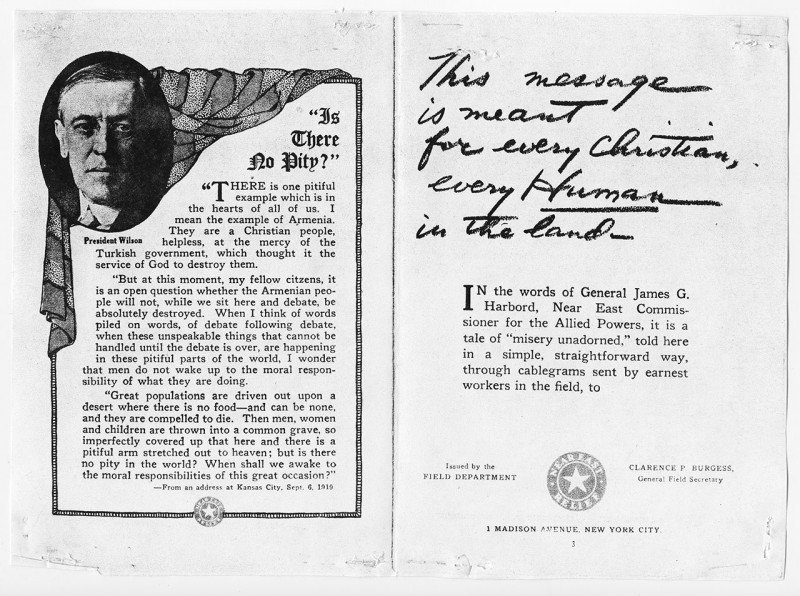 "Is
There
No Pity?"
"THERE is one pitiful
example which is in
the hearts of all of us. I
mean the example of Armenia.
They are a Christian people,
helpless, at the mercy of the
Turkish government, which thought it the
service of God to destroy them.
President Wilson
"But at this moment, my fellow citzens, it
is an open question whether the Armenian peo-
ple will not, while we sit here and debate, be
absolutely destroyed. When I think of words
piled on words, of debate following debate,
when these unspeakable things that cannot be
handled until the debate is over, are happening
in these pitiful parts of the world, I wonder
that men do not wake up to the moral respon-
sibility of what they are doing.
"Great populations are driven out upon a
desert where there is no food—and can be none,
and they are compelled to die. Then men, women
and children are thrown into a common grave, so
imperfectly covered up that here and there is a
pitiful arm stretched out to heaven; but is there
no pity in the world? When shall we awake to
the moral responsibilities of this great occasion?"
—From an address at Kansas City, Sept. 6, 1919
This message
is meant
for every Christian,
every Human
in the land—
IN the words of General James G.
Harbord, Near East Commis-
sioner for the Allied Powers, it is a
tale of "misery unadorned," told here
in a simple, straightforward way,
through cablegrams sent by earnest
workers in the field, to
Issued by the
FIELD DEPARTMENT
NEAR EAST
RELIEF
CLARENCE P. BURGESS,
General Field Secretary
1 MADISON AVENUE, NEW YORK CITY.
3